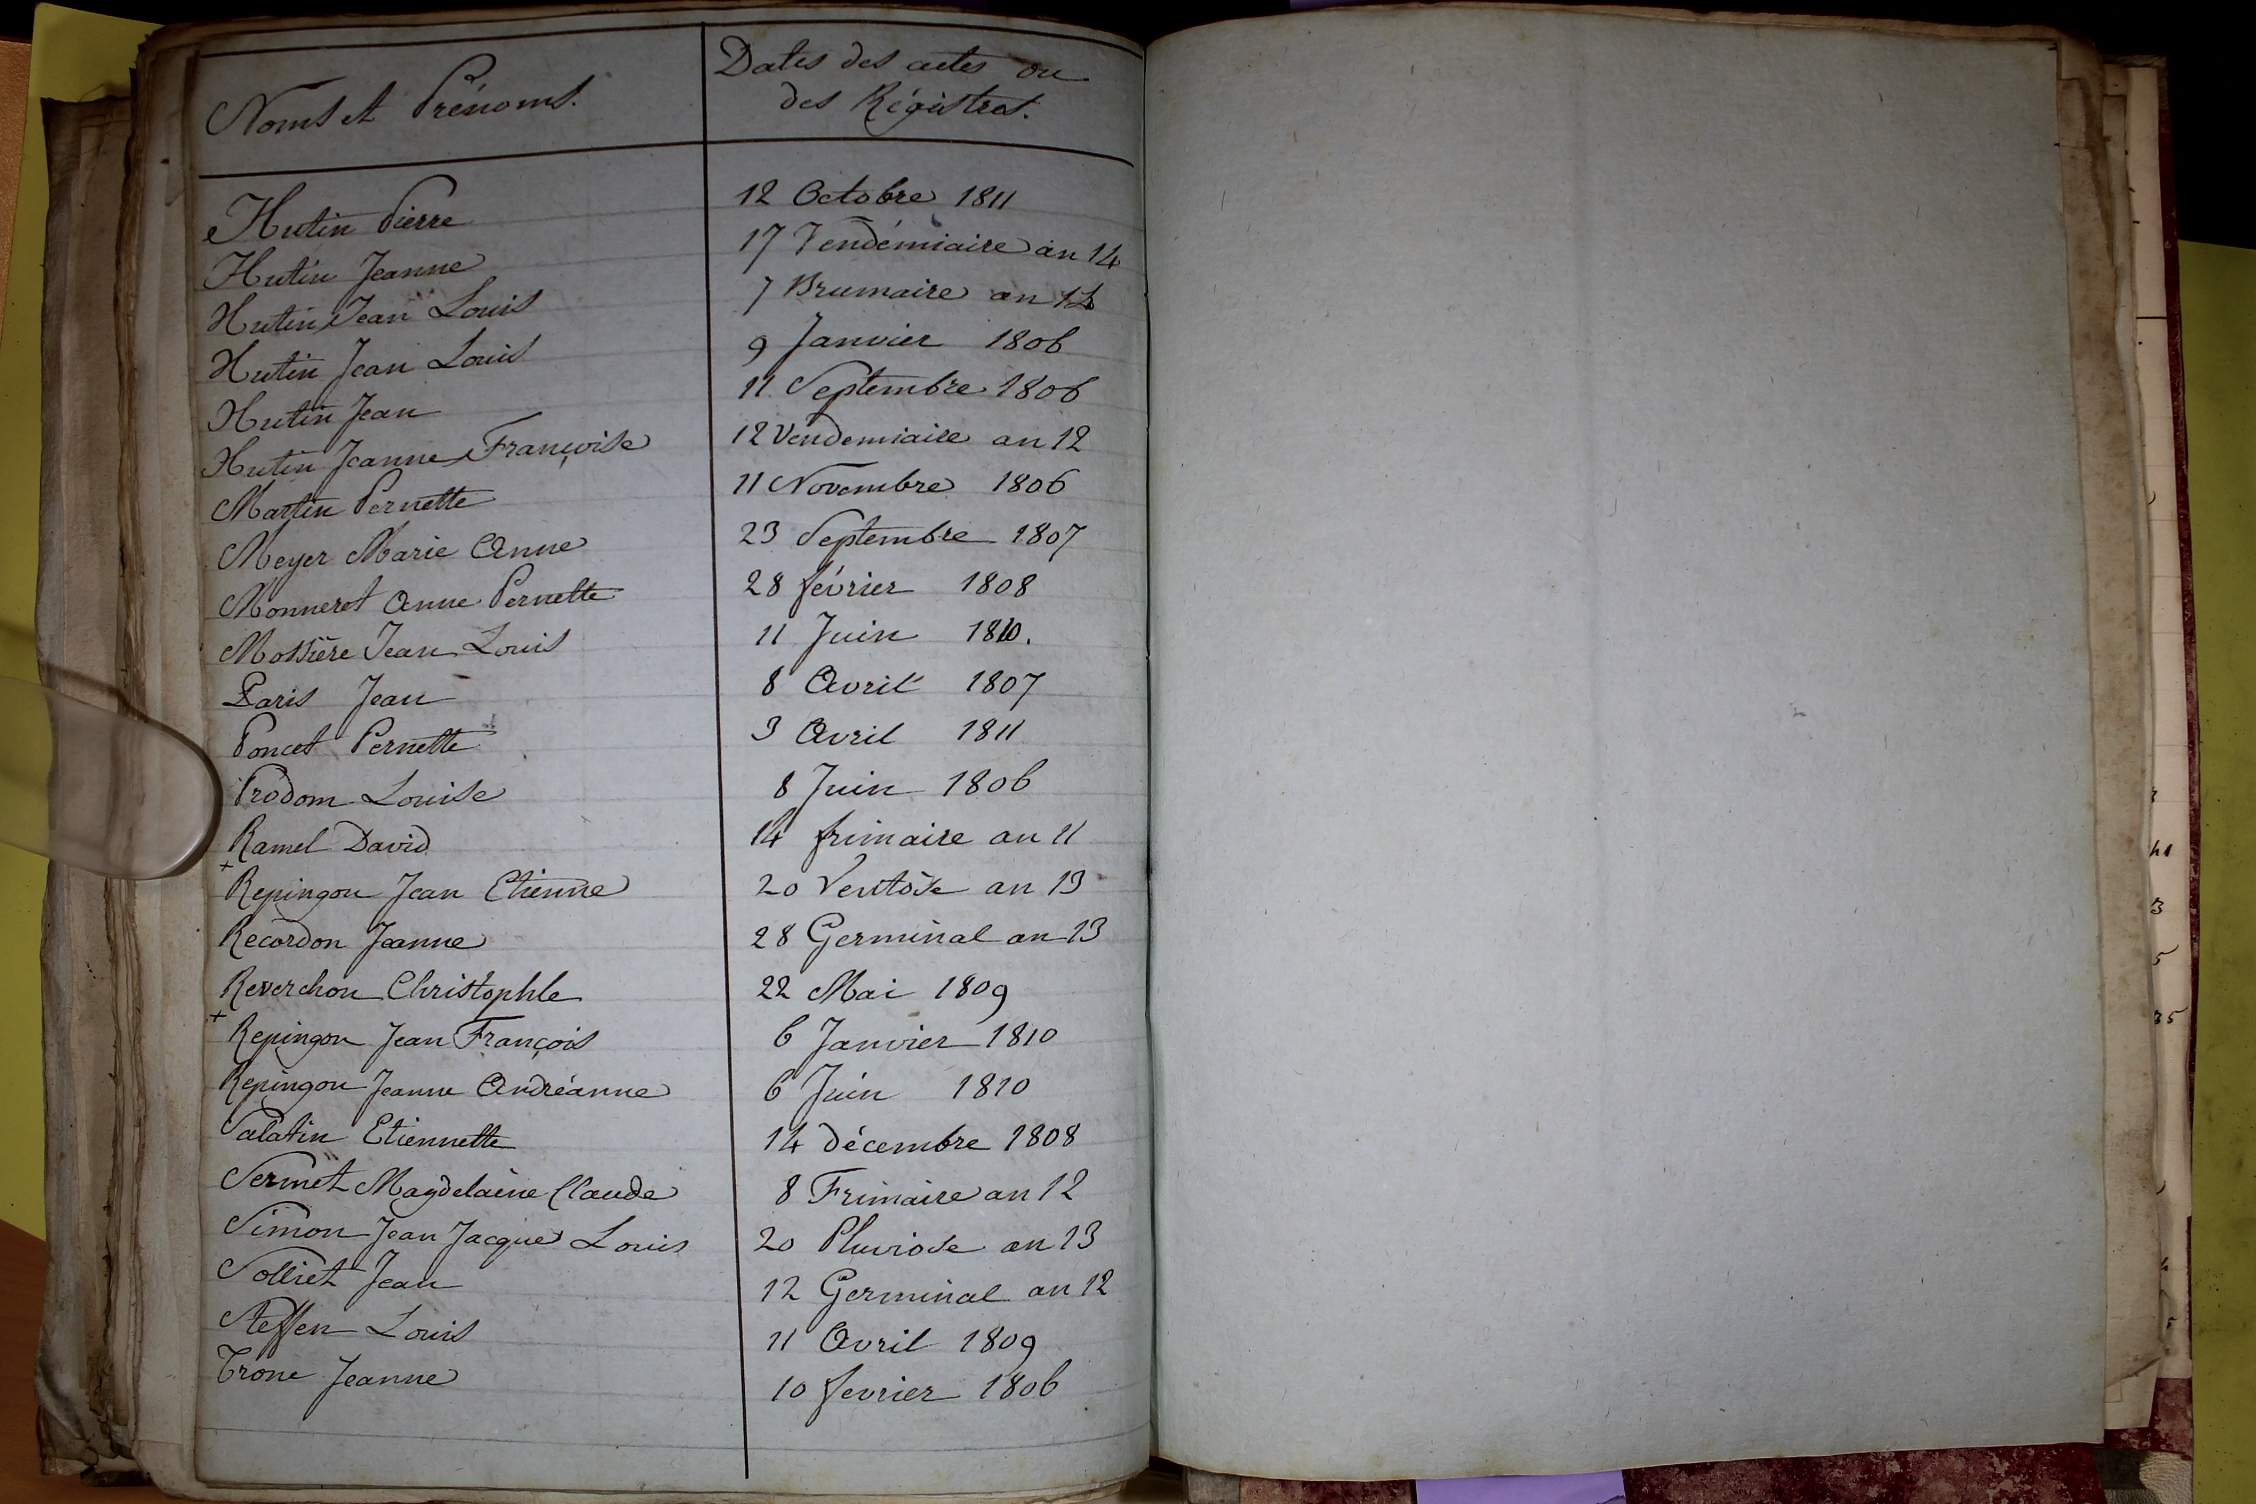 Noms et Prénoms. Dates des actes ou
des Régistres.
Hutin Pierre 12 Octobre 1811
Hutin Jeanne 17 Vendémiaire an 14
Hutin Jean Louis 7 Brumaire an 14
Hutin Jean Louis 9 Janvier 1806
Hutin Jean 11 Septembre 1806
Hutin Jeanne Françoise 12 Vendemiaire an 12
Martin Pernette 11 Novembre 1806
Meyer Marie Anne 23 Septembre 1807
Monneret Anne Pernette 28 février 1808
Mossière Jean Louis 11 Juin 1810.
Paris Jean 8 Avril 1807
Poncet Pernette 3 Avril 1811
Prodom Louise 8 Juin 1806
Ramel David 14 frimaire an 11
+ Repingon Jean Etienne 20 Ventôse an 13
Recordon Jeanne 28 Germinal an 13
Reverchon Christophle 22 Mai 1809
+ Repingon Jean François 6 Janvier 1810
Repingon Jeanne Andréanne 6 Juin 1810
Salatin Etiennette 14 décembre 1808
Sermet Magdelaine Claude 8 Frimaire an 12
Simon Jean Jacques Louis 20 Pluviose an 13
Solliet Jean 12 Germinal an 12
Steffen Louis 11 Avril 1809
Trone Jeanne 10 fevrier 1806
3
5
35